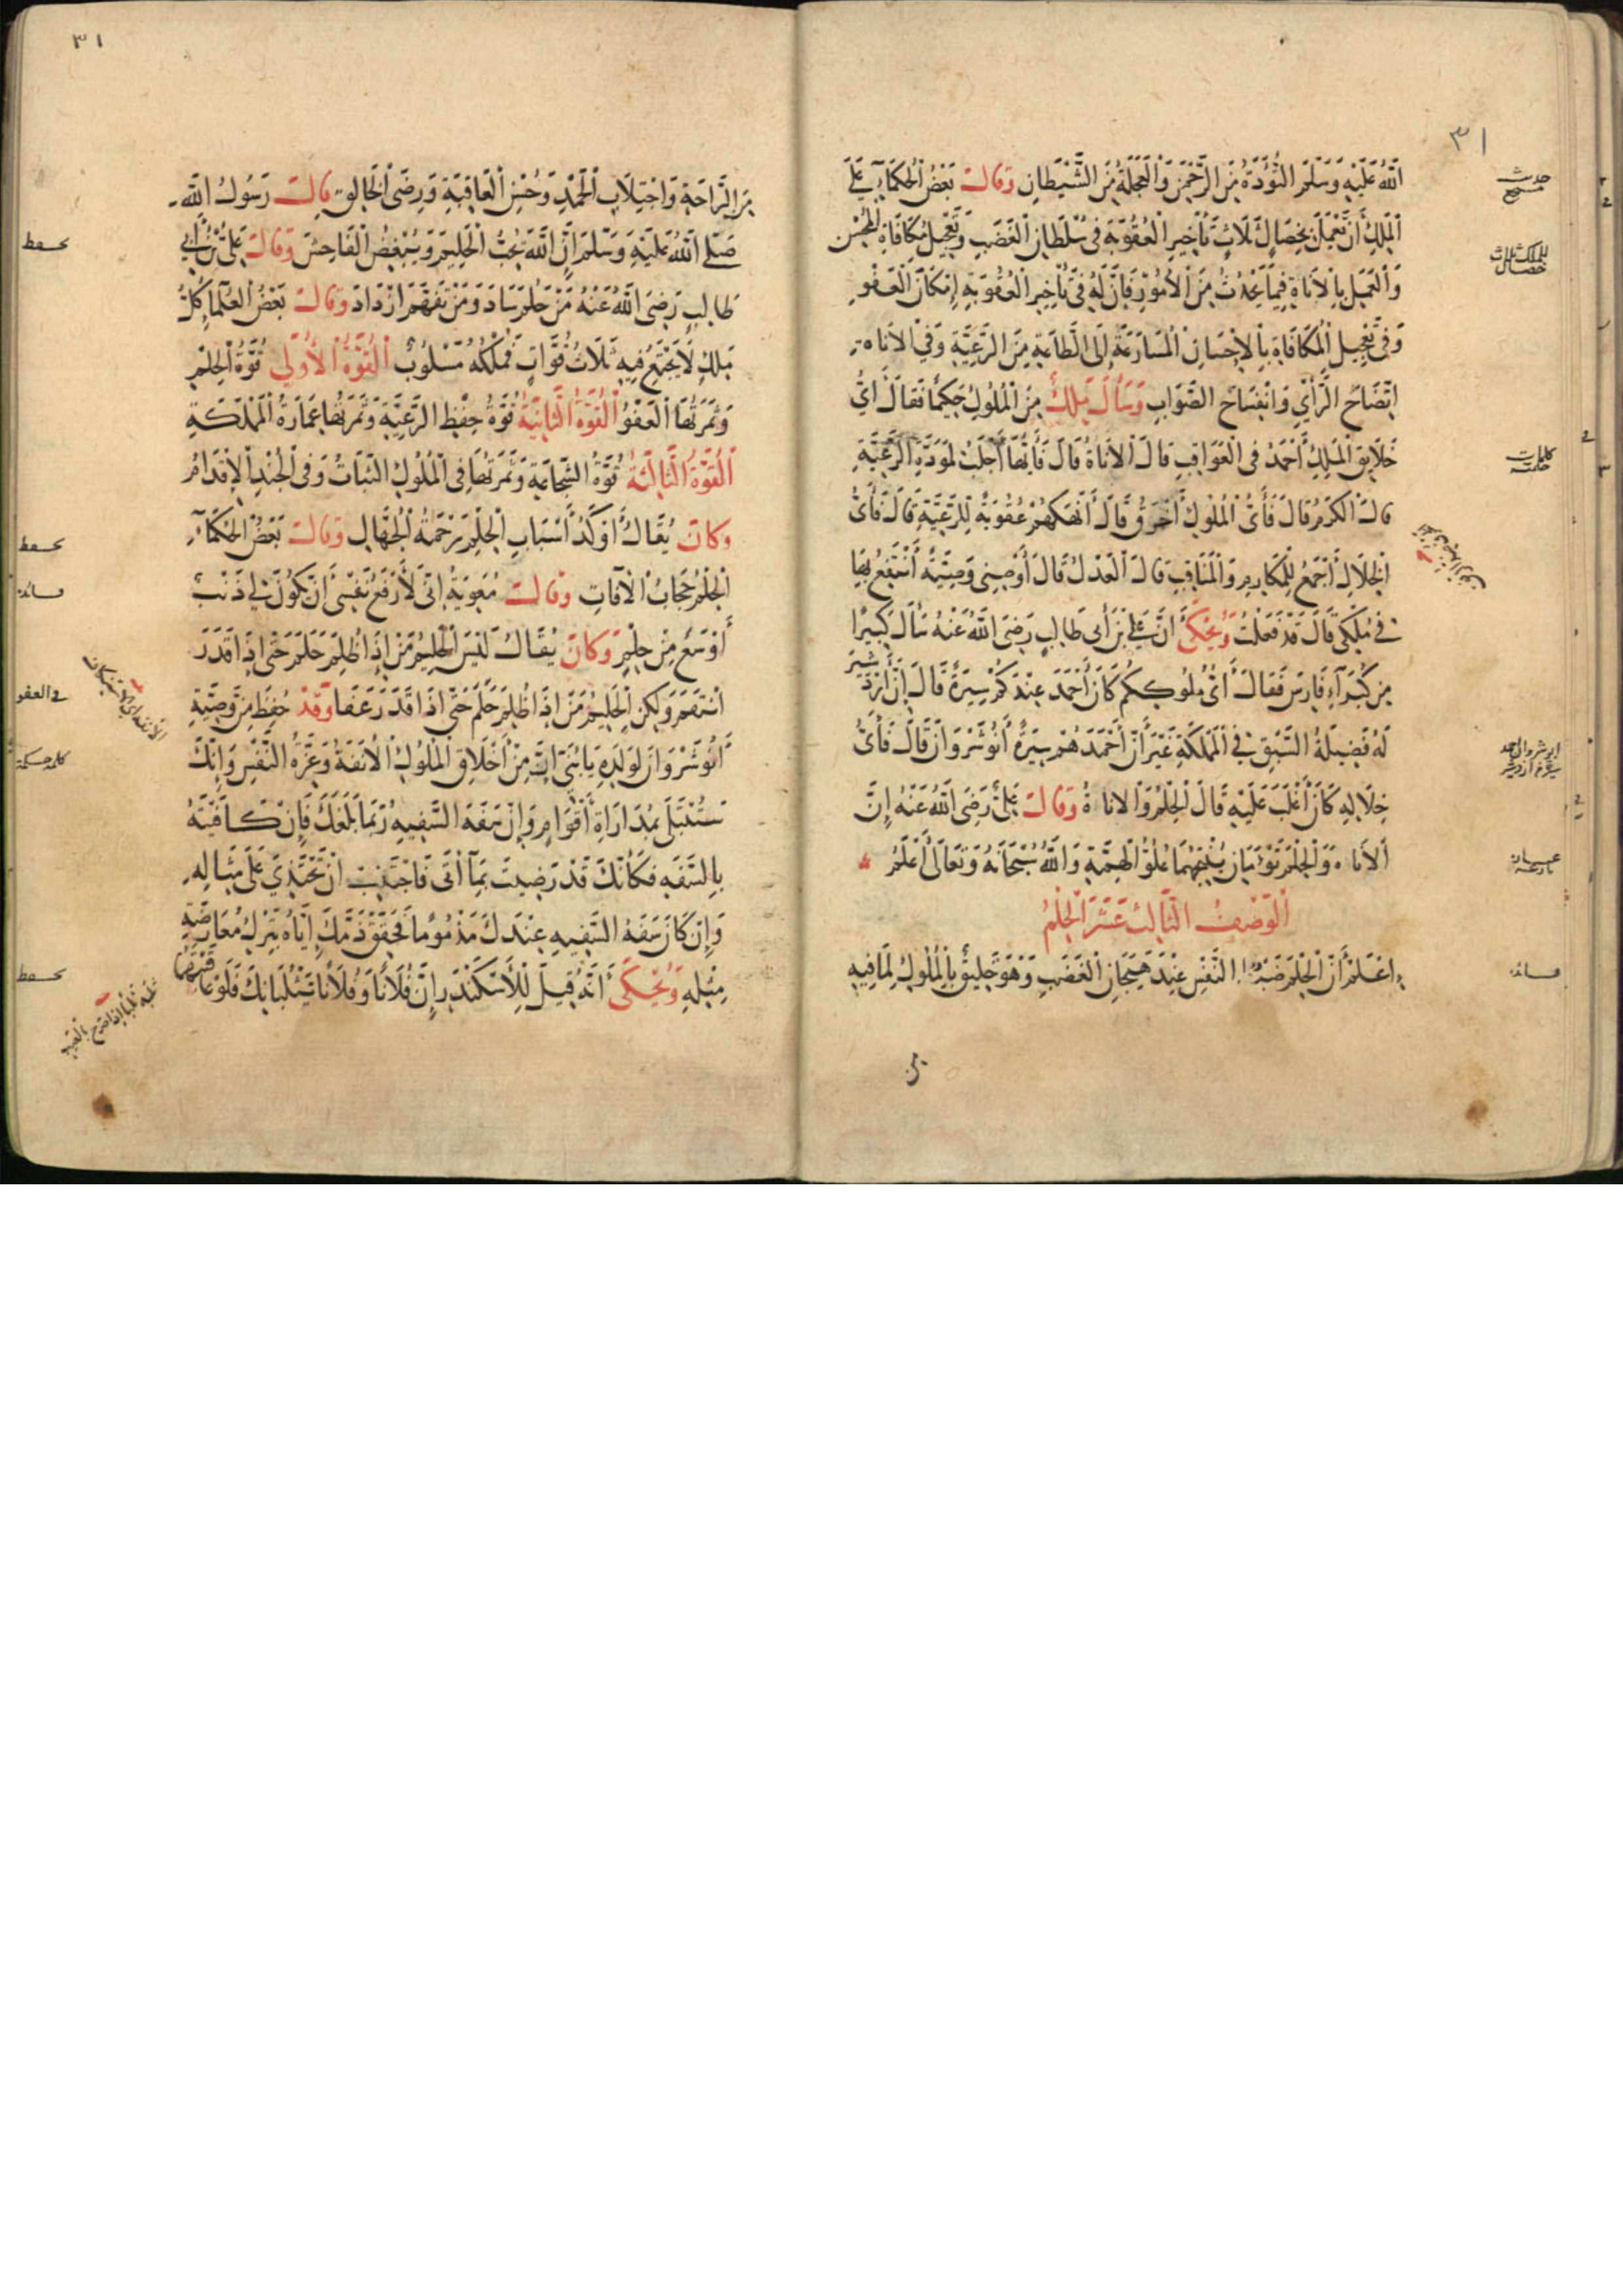 ٣١
اللّٰهُ عَلَيْهِ وَسَلَّمَ التُّؤَدَةُ مِنَ الرَّحْمٰنِ وَالْعَجَلَةُ مِنَ الشَّيْطَانِ وَقَالَ بَعْضُ الْحُكَمَاءِ عَلَى
الْمَلِكِ أَنْ يَعْمَلَ بِخِصَالٍ ثَلَاثٍ تَأْخِيرِ الْعُقُوبَةِ فِى سُلْطَانِ الْغَضَبِ وَتَعْجِيلِ مُكَافَاةِ الْمُحْسِنِ
وَالْعَمَلِ بِالْأَنَاةِ فِيمَا يَحْدُثُ مِنَ الْأُمُورِ فَإِنَّ لَهُ فِى تَأْخِيرِ الْعُقُوبَةِ إِمْكَانَ الْعَفْوِ
وَفِى تَعْجِيلِ الْمُكَافَاةِ بِالْإِحْسَانِ الْمُسَارَعَةَ إِلَى الطَّاعَةِ مِنَ الرَّعِيَّةِ وَفِى الْأَنَاةِ
اتِّضَاحَ الرَّأْيِ وَانْفِسَاحَ الصَّوَابِ وَسَأَلَ مَلِكٌ مِنَ الْمُلُوكِ حَكِيمًا فَقَالَ أَيُّ
خَلَايِقِ الْمَلِكِ أَحْمَدُ فِى الْعَوَاقِبِ قَالَ الْأَنَاةُ قَالَ فَأَيُّهَا أَجْلَبُ لِمَوَدَّةِ الرَّعِيَّةِ
قَالَ الْكَرَمُ قَالَ فَأَىُّ الْمُلُوكِ أَخْرَقُ قَالَ أَنْهَكُهُمْ عُقُوبَةً لِلرَّعِيَّةِ قَالَ فَأَىُّ
الْخِلَالِ أَجْمَعُ لِلْمَكَارِمِ وَالْمَنَاقِبِ قَالَ الْعَدْلُ قَالَ أَوْصِنِى وَصِيَّةً أَنْتَفِعُ بِهَا
فِى مُلْكِى قَالَ قَدْ فَعَلْتُ وَيُحْكَى أَنَّ عَلِىَّ بْنَ أَبِى طَالِبٍ رَضِىَ اللّٰهُ عَنْهُ سَأَلَ كَبِيرًا
مِنْ كُبَرَآءِ فَارِسَ فَقَالَ أَىُّ مُلُوكِكُمْ كَانَ أَحْمَدَ عِنْدَكُمْ سِيرَةً قَالَ إِنَّ أَزْدَشِيرَ
لَهُ فَضِيلَةُ السَّبْقِ فِى الْمَمْلَكَةِ غَيْرَ أَنَّ أَحْمَدَهُمْ سِيرَةً أَنُوشِرْوَانَ قَالَ فَأَىُّ
خِلَالِهِ كَانَ أَغْلَبَ عَلَيْهِ قَالَ الْحِلْمُ وَالْأَنَاةُ وَقَالَ عَلِىٌّ رَضِىَ اللّٰهُ عَنْهُ إِنَّ
الْأَنَاةَ وَالْحِلْمَ تَوْءَمَانِ يُنْتِجُهُمَا عُلُوُّ الْهِمَّةِ وَاللّٰهُ سُبْحَانَهُ وَتَعَالَى أَعْلَمُ
الْوَصْفُ الثَّالِثَ عَشَرَ الْحِلْمُ
اعْلَمْ أَنَّ الْحِلْمَ ضَبْطُ النَّفْسِ عِنْدَ هَيَجَانِ الْغَضَبِ وَهُوَ خَلِيقٌ بِالْمُلُوكِ لِمَا فِيهِ
حديث
صحيح
للملك ثلاث
خصال
كلمات
حكمة
فائدة
٣١
مِنَ الرَّاحَةِ وَاجْتِلَابِ الْحَمْدِ وَحُسْنِ الْعَاقِبَةِ وَرِضَى الْخَالِقِ قَالَ رَسُولُ اللّٰهِ
صَلَّى اللّٰهُ عَلَيْهِ وَسَلَّمَ إِنَّ اللّٰهَ يُحِبُّ الْحَلِيمَ وَيُبْغِضُ الْفَاحِشَ وَقَالَ عَلِىُّ بْنُ أَبِى
طَالِبٍ رَضِىَ اللّٰهُ عَنْهُ مَنْ حَلُمَ سَادَ وَمَنْ تَفَهَّمَ ازْدَادَ وَقَالَ بَعْضُ الْعُلَمَاءِ كُلُّ
مَلِكٍ لَا يَجْتَمِعُ فِيهِ ثَلَاثُ قُوَّاتٍ فَمُلْكُهُ مَسْلُوبٌ الْقُوَّةُ الْأُولَى قُوَّةُ الْحِلْمِ
وَثَمَرَتُهَا الْعَفْوُ الْقُوَّةُ الثَّانِيَةُ قُوَّةُ حِفْظِ الرَّعِيَّةِ وَثَمَرَتُهَا عِمَارَةُ الْمَمْلَكَةِ
الْقُوَّةُ الثَّالِثَةُ قُوَّةُ الشَّجَاعَةِ وَثَمَرَتُهَا فِى الْمُلُوكِ الثَّبَاتُ وَفِى الْجُنْدِ الْإِقْدَامُ
وَكَانَ يُقَالُ أَوْكَدُ أَسْبَابِ الْحِلْمِ رَحْمَةُ الْجُهَّالِ وَقَالَ بَعْضُ الْحُكَمَآءِ
الْحِلْمُ حِجَابُ الْآفَاتِ وَقَالَ مُعَوِيَةُ إِنِّى لَأَرْفَعُ نَفْسِى أَنْ يَكُونَ لِى ذَنْبٌ
أَوْسَعُ مِنْ حِلْمٍ وَكَانَ يُقَالُ لَيْسَ الْحَلِيمُ مَنْ إِذَا ظُلِمَ حَلُمَ حَتَّى إِذَا قَدَرَ
انْتَقَمَ وَلَكِنِ الْحَلِيمُ مَنْ إِذَا ظُلِمَ حَلُمَ حَتَّى إِذَا قَدَرَ عَفَا وَقَدْ حُفِظَ مِنْ وَصِيَّةِ
أَنُوشِرْوَانَ لِوَلَدِهِ يَا بُنَىَّ إِنَّ مِنْ أَخْلَاقِ الْمُلُوكِ الْأَنَفَةَ وَعِزَّةَ النَّفْسِ وَإِنَّكَ
سَتُبْتَلَى بِمُدَارَاةِ أَقْوَامٍ وَإِنَّ سَفَهَ السَّفِيهِ رُبَّمَا بَلَغَكَ فَإِنْ كَافَيْتَهُ
بِالسَّفَهِ فَكَأَنَّكَ قَدْ رَضِيتَ بِمَا أَتَى فَاجْتَنِبْ أَنْ تَحْتَذِيَ عَلَى مِثَالِهِ
وَإِنْ كَانَ سَفَهُ السَّفِيهِ عِنْدَكَ مَذْمُومًا فَحَقِّقْ ذَمَّكَ إِيَّاهُ بِتَرْكِ مُعَارَضَةِ
مِثْلِهِ وَيُحْكَى أَنَّهُ قِيلَ لِلْأَسْكَنْدَرِ إِنَّ فُلَانًا وَفُلَانًا يَثْلُبَانِكَ فَلَوْ عَاقَبْتَهُمَا
فائدة
فى العفو
كلمة حكمة